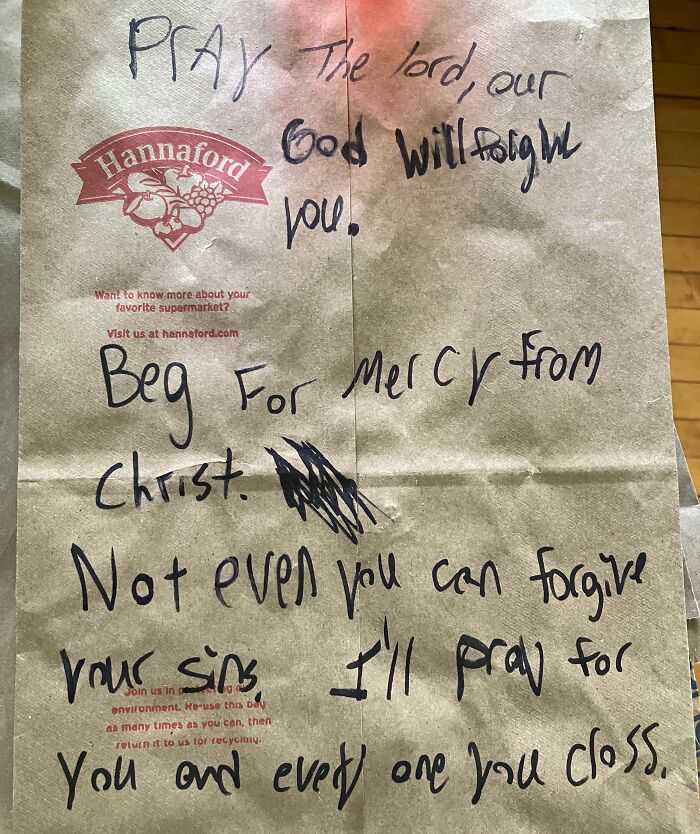 PrAy The lord, our
God will forgive
you.
Hannaford
Want to know more about your
favorite supermarket?
Visit us at hannaford.com
Beg For Mercy from
Christ.
Not even you can forgive
your sins. I'll pray for
Join us in protecting our
environment. Re-use this bag
as many times as you can, then
return it to us for recycling.
You and every one you closs.